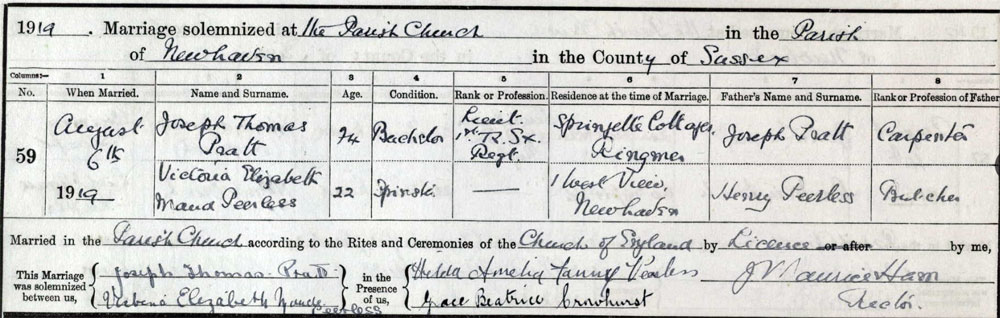 1919. Marriage solemnized at the Parish Church in the Parish
of Newhaven in the County of Sussex
Columns:— 1 2 3 4 5 6 7 8
No. When Married. Name and Surname. Age. Condition. Rank or Profession. Residence at the time of Marriage. Father's Name and Surname. Rank or Profession of Father
59
August
6th
1919
Joseph Thomas
Pratt
24
Bachelor
Lieut.
1st R. Sx.
Regt.
Springette Cottages
Ringmer
Joseph Pratt
Carpenter
Victoria Elizabeth
Maud Peerless
22
Spinster
—
1 West View,
Newhaven
Henry Peerless
Butcher
Married in the Parish Church according to the Rites and Ceremonies of the Church of England by Licence or after by me,
This Marriage
was solemnized
between us,
Joseph Thomas Pratt
Elizabeth Maude
Peerless
in the
Presence
of us,
Hilda Amelia Fanny Peerless
Grace Beatrice Crowhurst
J Maurice Ham
Rector.